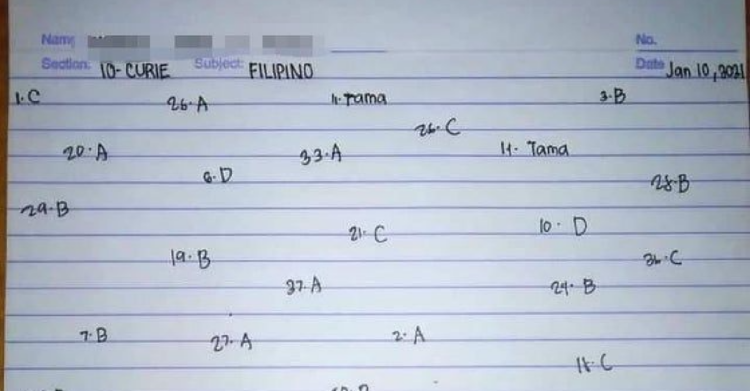 Name No.
Section: 10-CURIE Subject: FILIPINO Date Jan 10, 2021
1. C 26. A Tama 3. B
26. C
20. A 33. A 11. Tama
6. D 28. B
29. B
21. C 10. D
19. B 36. C
37. A 24. B
7. B 27. A 2. A
18. C